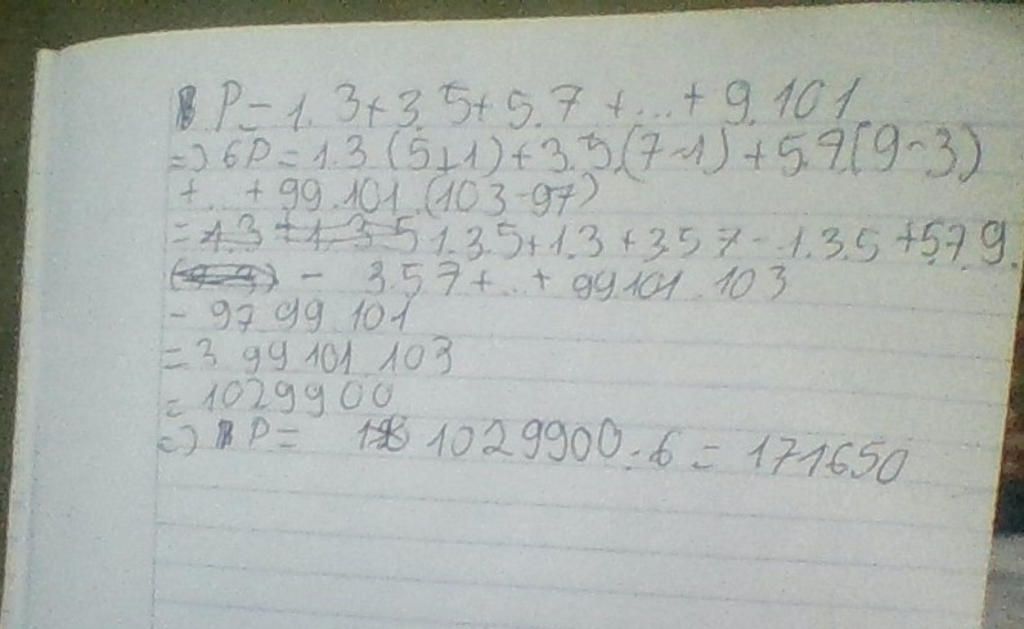 P = 1.3 + 3.5 + 5.7 + ... + 9.101
=> 6P = 1.3 (5+1) + 3.5.(7-1) + 5.7(9-3)
+ ... + 99.101.(103-97)
= 1.3.5 + 1.3 + 3.5.7 - 1.3.5 + 5.7.9.
- 3.5.7 + ... + 99 101.103
- 97 99 101
= 3 99 101 103
= 1029900
=> P = 1029900 : 6 = 171650